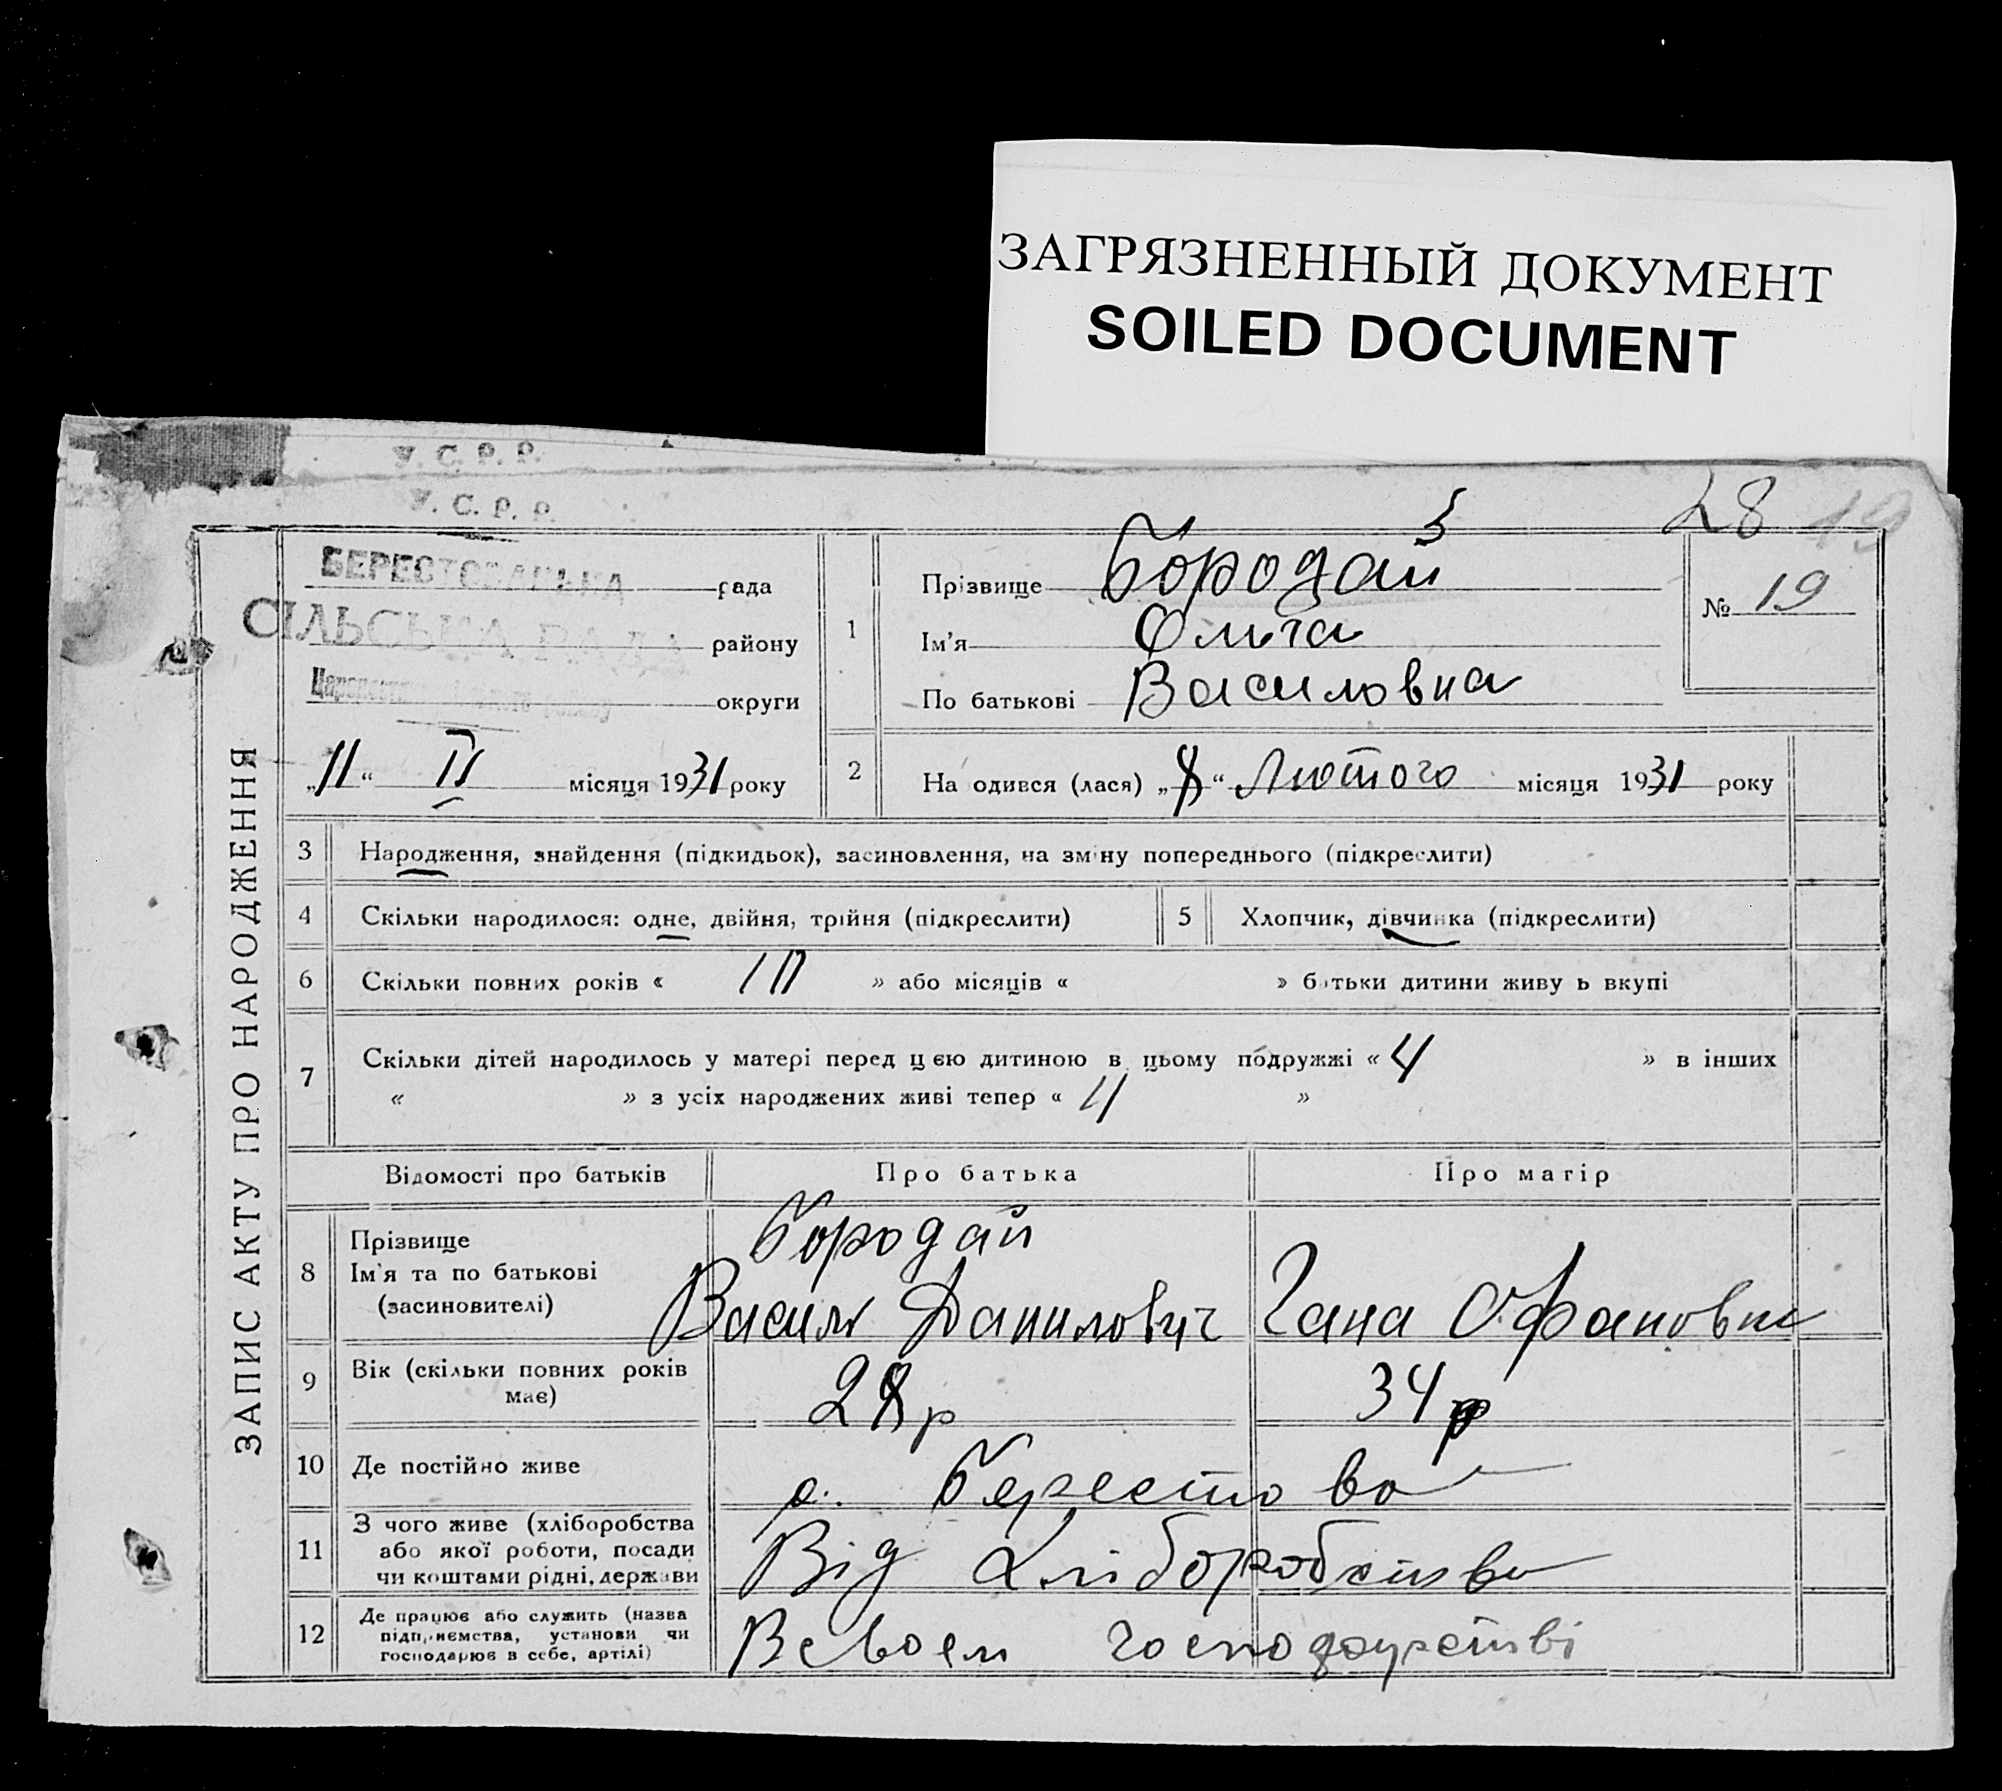 ЗАГРЯЗНЕННЫЙ ДОКУМЕНТ
SOILED DOCUMENT
У. С. Р. Р.
У. С. Р. Р.
28 19
ЗАПИС АКТУ ПРО НАРОДЖЕННЯ
БЕРЕСТОВАНСЬКА рада
СІЛЬСЬКА РАДА району
округи
„11“ II місяця 1931 року
1 Прізвище Бородай
Ім'я Ольга
По батькові Василовна
№ 19
2 На одився (лася) „8“ Лютого місяця 1931 року
3 Народження, знайдення (підкидьок), засиновлення, на зміну попереднього (підкреслити)
4 Скільки народилося: одне, двійня, трійня (підкреслити) 5 Хлопчик, дівчинка (підкреслити)
6 Скільки повних років « » або місяців « » батьки дитини живу ь вкупі
7 Скільки дітей народилось у матері перед цією дитиною в цьому подружжі « 4 » в інших
« » з усіх народжених живі тепер « 4 »
Відомості про батьків Про батька Про матір
8 Прізвище
Ім'я та по батькові
(засиновителі)
Бородай
Василь Данилович Гана Офановна
9 Вік (скільки повних років
має)
28 р 34 р
10 Де постійно живе с. Берестова
11 З чого живе (хліборобства
або якої роботи, посади
чи коштами рідні, держави
Від хліборобства
12 Де працює або служить (назва
підприємства, установи чи
господарює в себе, артілі)
В своєм господарстві